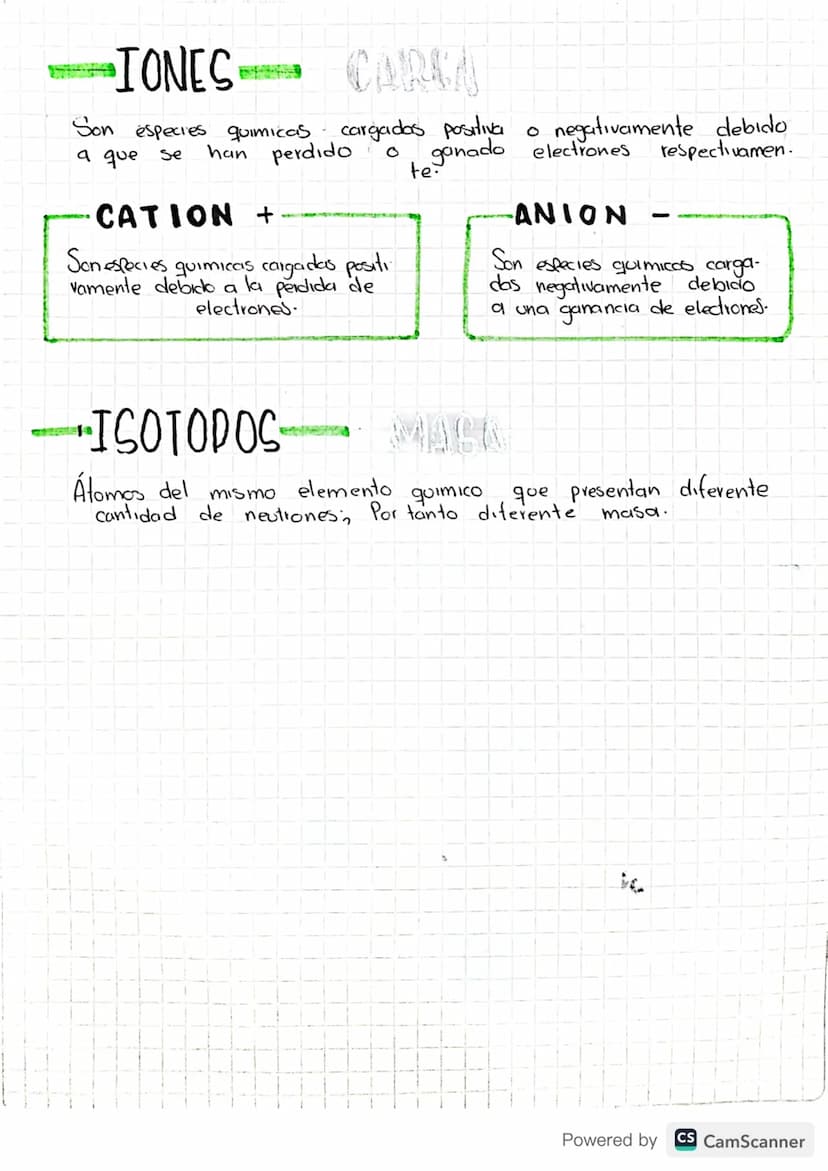 IONES CARGA
Son especies quimicas cargados positiva o negativamente debido
a que se han perdido o ganado electrones respectivamen.
te.
CATION +
Son especies quimicas cargadas positi
vamente debido a la perdida de
electrones.
ANION -
Son especies quimicas carga-
das negativamente debido
a una ganancia de electrones.
ISOTOPOS MASA
Átomos del mismo elemento quimico que presentan diferente
cantidad de neutrones; Por tanto diferente masa.
Powered by CS CamScanner